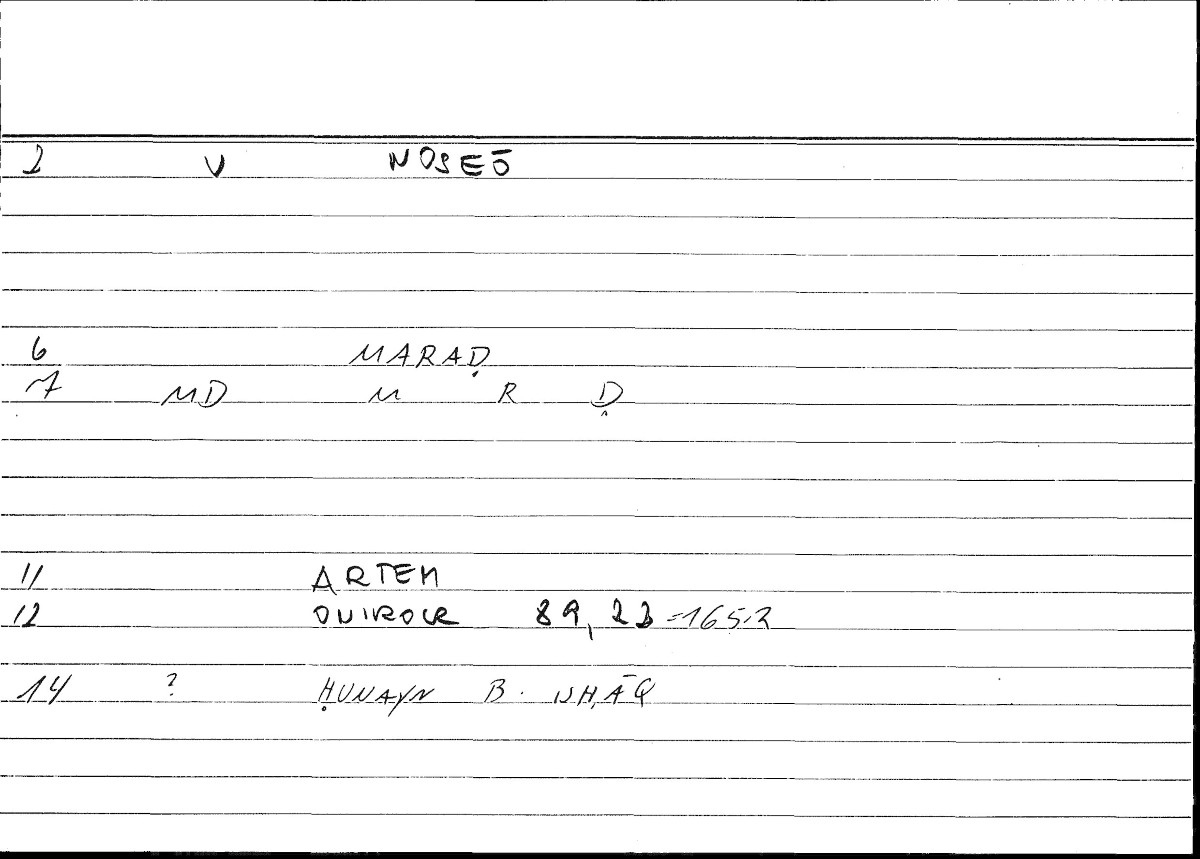 2 V NOSEŌ
6 MARAḌ
7 MD M R Ḍ
11 ARTEM
12 ONIROCR 89, 23 =165.2
14 ? ḤUNAYN B. ISḤĀQ